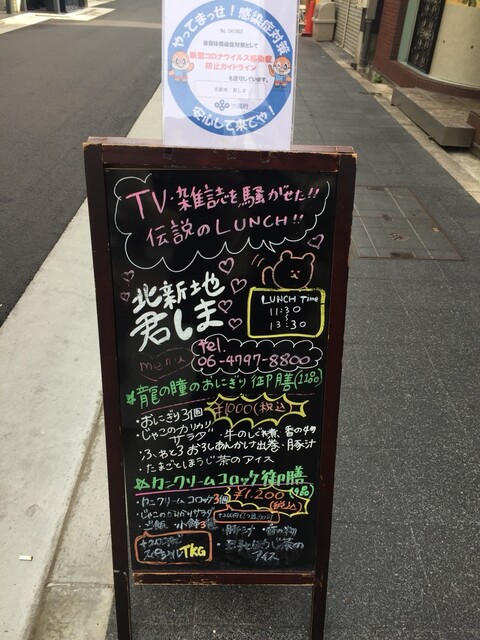 やってまっせ！感染症対策
当店は感染症対策として
新型コロナウイルス感染症
防止ガイドライン
を遵守しています。
安心して来てや！
TV・雑誌を騒がせた!!
伝説のLUNCH!!
北新地
君しま
LUNCH Time
11:30
〜
13:30
menu
Tel.
06-4797-8800
☆龍の瞳のおにぎり御膳(11品)
・おにぎり3個
¥1000(税込)
・じゃこのカリカリサラダ
・牛のしぐれ煮
香の物
・ふわとろおろしあんかけ出巻・豚汁
・たまごとほうじ茶のアイス
☆カニクリームコロッケ御膳
・カニクリームコロッケ3個
¥1,200(9品)
(税込)
・じゃこのカリカリサラダ
・ご飯
・小鉢3種
・豚汁
・香の物
スペシャルTKG
アイス